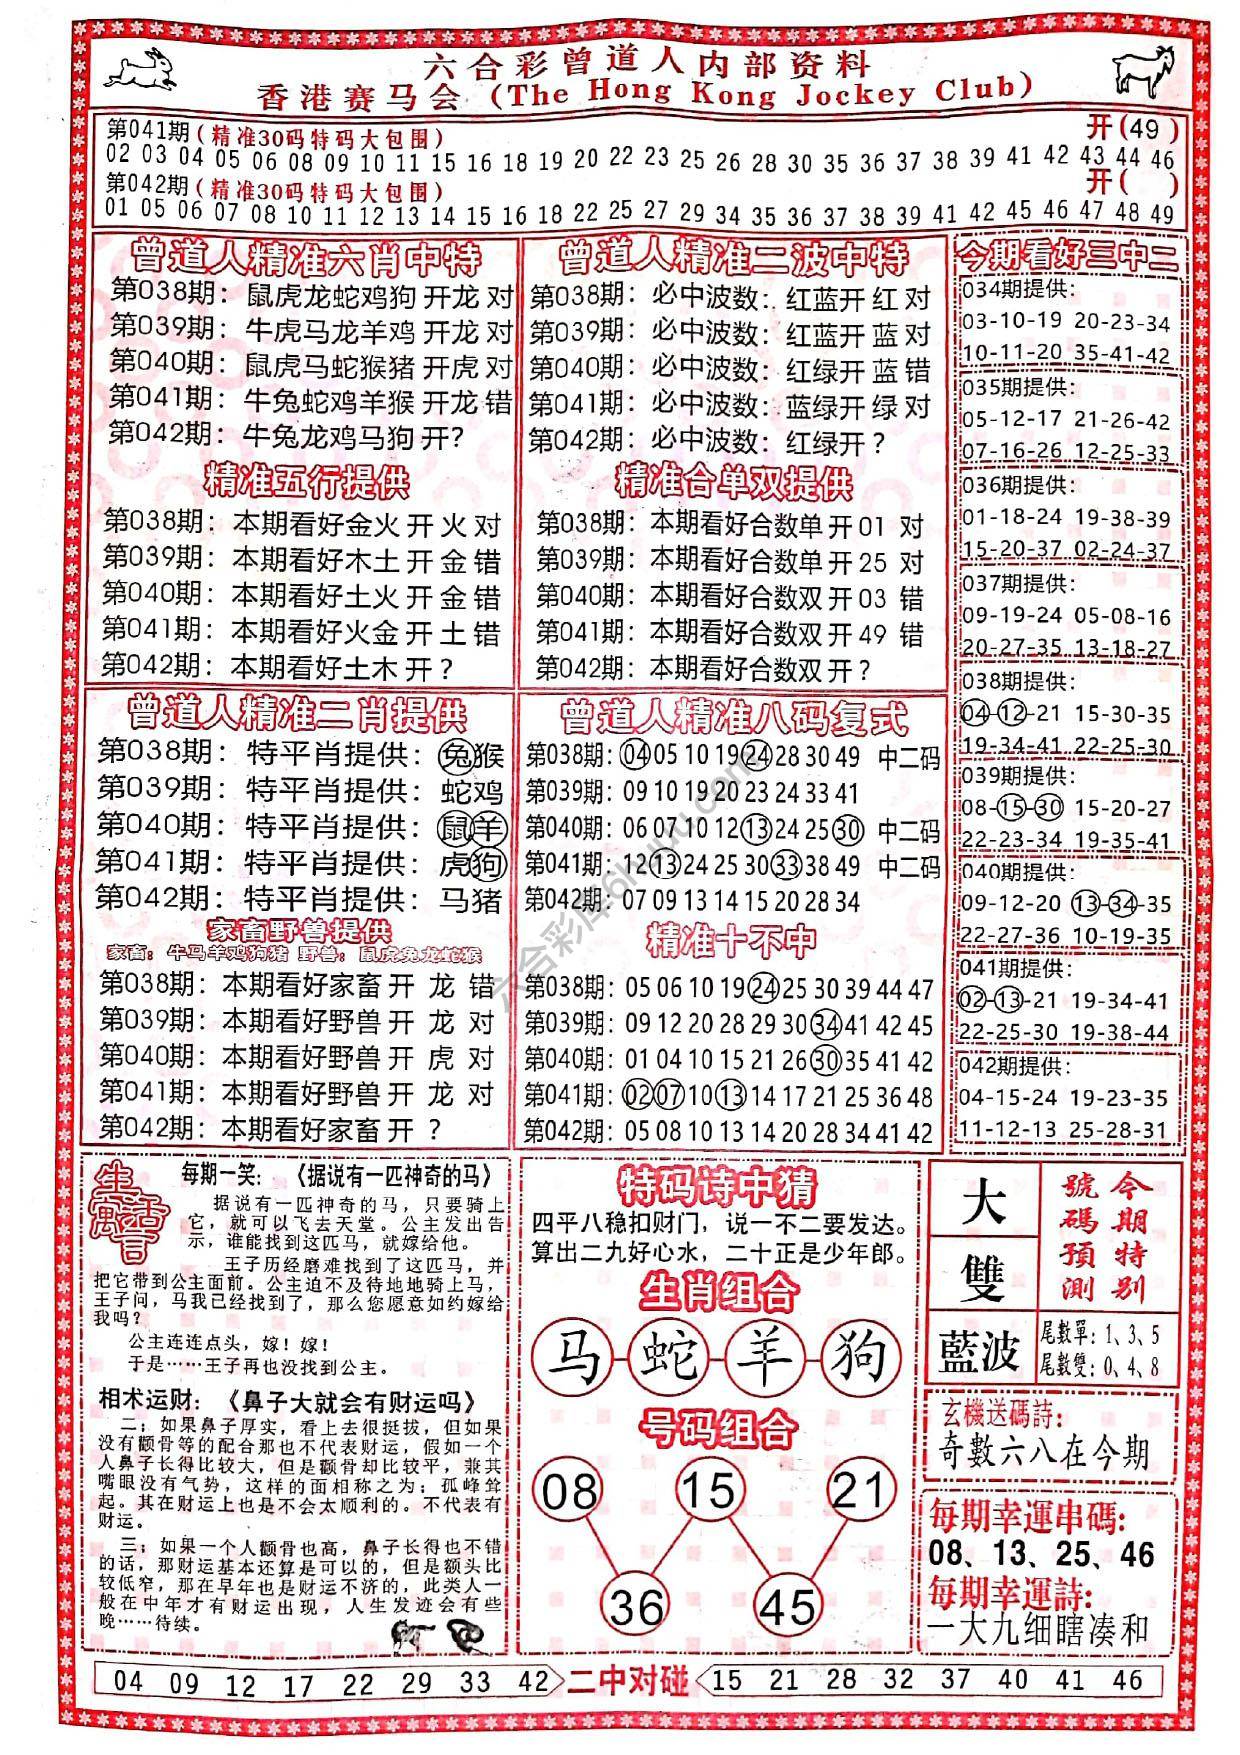 六合彩曾道人内部资料
香港赛马会(The Hong Kong Jockey Club)
第041期(精准30码特码大包围) 开(49)
02 03 04 05 06 08 09 10 11 15 16 18 19 20 22 23 25 26 28 30 35 36 37 38 39 41 42 43 44 46
第042期(精准30码特码大包围) 开( )
01 05 06 07 08 10 11 12 13 14 15 16 18 22 25 27 29 34 35 36 37 38 39 41 42 45 46 47 48 49
曾道人精准六肖中特
第038期：鼠虎龙蛇鸡狗 开龙 对
第039期：牛虎马龙羊鸡 开龙 对
第040期：鼠虎马蛇猴猪 开虎 对
第041期：牛兔蛇鸡羊猴 开龙 错
第042期：牛兔龙鸡马狗 开?
精准五行提供
第038期：本期看好金火 开 火 对
第039期：本期看好木土 开 金 错
第040期：本期看好土火 开 金 错
第041期：本期看好火金 开 土 错
第042期：本期看好土木 开 ?
曾道人精准二波中特
第038期：必中波数：红蓝开 红 对
第039期：必中波数：红蓝开 蓝 对
第040期：必中波数：红绿开 蓝 错
第041期：必中波数：蓝绿开 绿 对
第042期：必中波数：红绿开 ?
精准合单双提供
第038期：本期看好合数单 开 01 对
第039期：本期看好合数单 开 25 对
第040期：本期看好合数双 开 03 错
第041期：本期看好合数双 开 49 错
第042期：本期看好合数双 开 ?
今期看好三中二
034期提供：
03-10-19 20-23-34
10-11-20 35-41-42
035期提供：
05-12-17 21-26-42
07-16-26 12-25-33
036期提供：
01-18-24 19-38-39
15-20-37 02-24-37
037期提供：
09-19-24 05-08-16
20-27-35 13-18-27
038期提供：
04-12-21 15-30-35
19-34-41 22-25-30
039期提供：
08-15-30 15-20-27
22-23-34 19-35-41
040期提供：
09-12-20 13-34-35
22-27-36 10-19-35
041期提供：
02-13-21 19-34-41
22-25-30 19-38-44
042期提供：
04-15-24 19-23-35
11-12-13 25-28-31
曾道人精准二肖提供
第038期：特平肖提供：兔猴
第039期：特平肖提供：蛇鸡
第040期：特平肖提供：鼠羊
第041期：特平肖提供：虎狗
第042期：特平肖提供：马猪
家畜野兽提供
家畜：牛马羊鸡狗猪 野兽：鼠虎兔龙蛇猴
第038期：本期看好家畜 开 龙 错
第039期：本期看好野兽 开 龙 对
第040期：本期看好野兽 开 虎 对
第041期：本期看好野兽 开 龙 对
第042期：本期看好家畜 开 ?
曾道人精准八码复式
第038期：04 05 10 19 24 28 30 49 中二码
第039期：09 10 19 20 23 24 33 41
第040期：06 07 10 12 13 24 25 30 中二码
第041期：12 13 24 25 30 33 38 49 中二码
第042期：07 09 13 14 15 20 28 34
精准十不中
第038期：05 06 10 19 24 25 30 39 44 47
第039期：09 12 20 28 29 30 34 41 42 45
第040期：01 04 10 15 21 26 30 35 41 42
第041期：02 07 10 13 14 17 21 25 36 48
第042期：05 08 10 13 14 20 28 34 41 42
六合彩库6kuku.com
生活寓言
每期一笑：《据说有一匹神奇的马》
据说有一匹神奇的马，只要骑上
它，就可以飞去天堂。公主发出告
示，谁能找到这匹马，就嫁给他。
王子历经磨难找到了这匹马，并
把它带到公主面前。公主迫不及待地地骑上马，
王子问，马我已经找到了，那么您愿意如约嫁给
我吗?
公主连连点头，嫁！嫁！
于是……王子再也没找到公主。
相术运财：《鼻子大就会有财运吗》
二；如果鼻子厚实，看上去很挺拔，但如果
没有颧骨等的配合那也不代表财运，假如一个
人鼻子长得比较大，但是颧骨却比较平，兼其
嘴眼没有气势，这样的面相称之为；孤峰耸
起。其在财运上也是不会太顺利的。不代表有
财运。
三；如果一个人颧骨也高，鼻子长得也不错
的话，那财运基本还算是可以的，但是额头比
较低窄，那在早年也是财运不济的，此类人一
般在中年才有财运出现，人生发迹会有些
晚……待续。
特码诗中猜
四平八稳扣财门，说一不二要发达。
算出二九好心水，二十正是少年郎。
生肖组合
马 蛇 羊 狗
号码组合
08 15 21
36 45
大
雙
藍波
今期特别
號碼預測
尾數單：1、3、5
尾數雙：0、4、8
玄機送碼詩：
奇數六八在今期
每期幸運串碼：
08、13、25、46
每期幸運詩：
一大九细瞎凑和
04 09 12 17 22 29 33 42 二中对碰 15 21 28 32 37 40 41 46